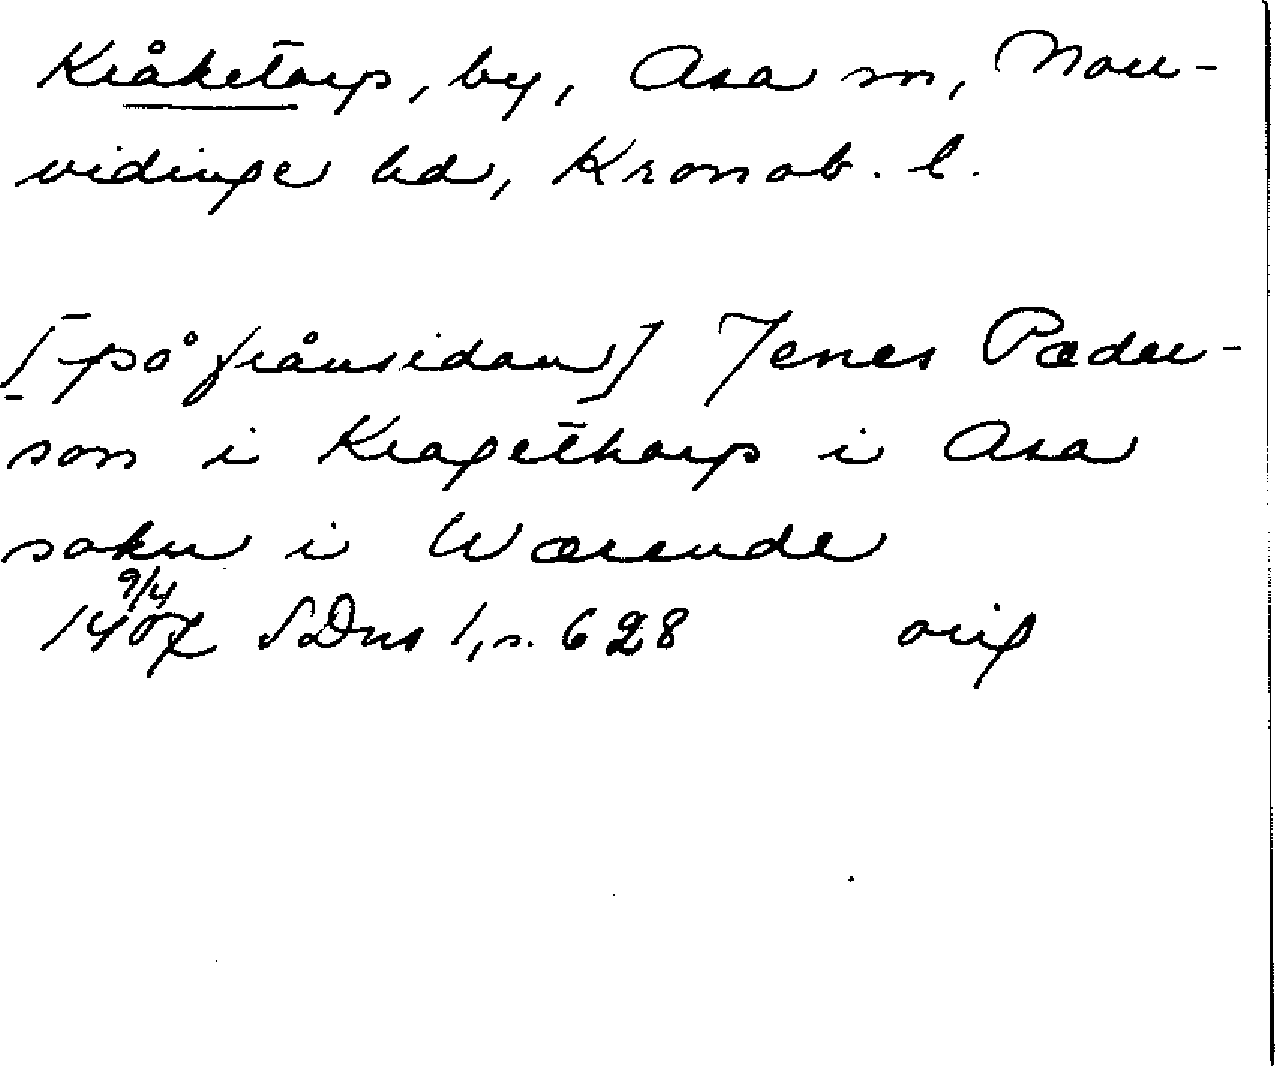 Kråketorp, by, Asa sn, Norr-
vidinge hd, Kronob. l.
[på frånsidan] Jenes Pæder-
son i Kragetthorp i Asa
sokn i Wærende
9/4
1407 SDns 1, s. 628 orig